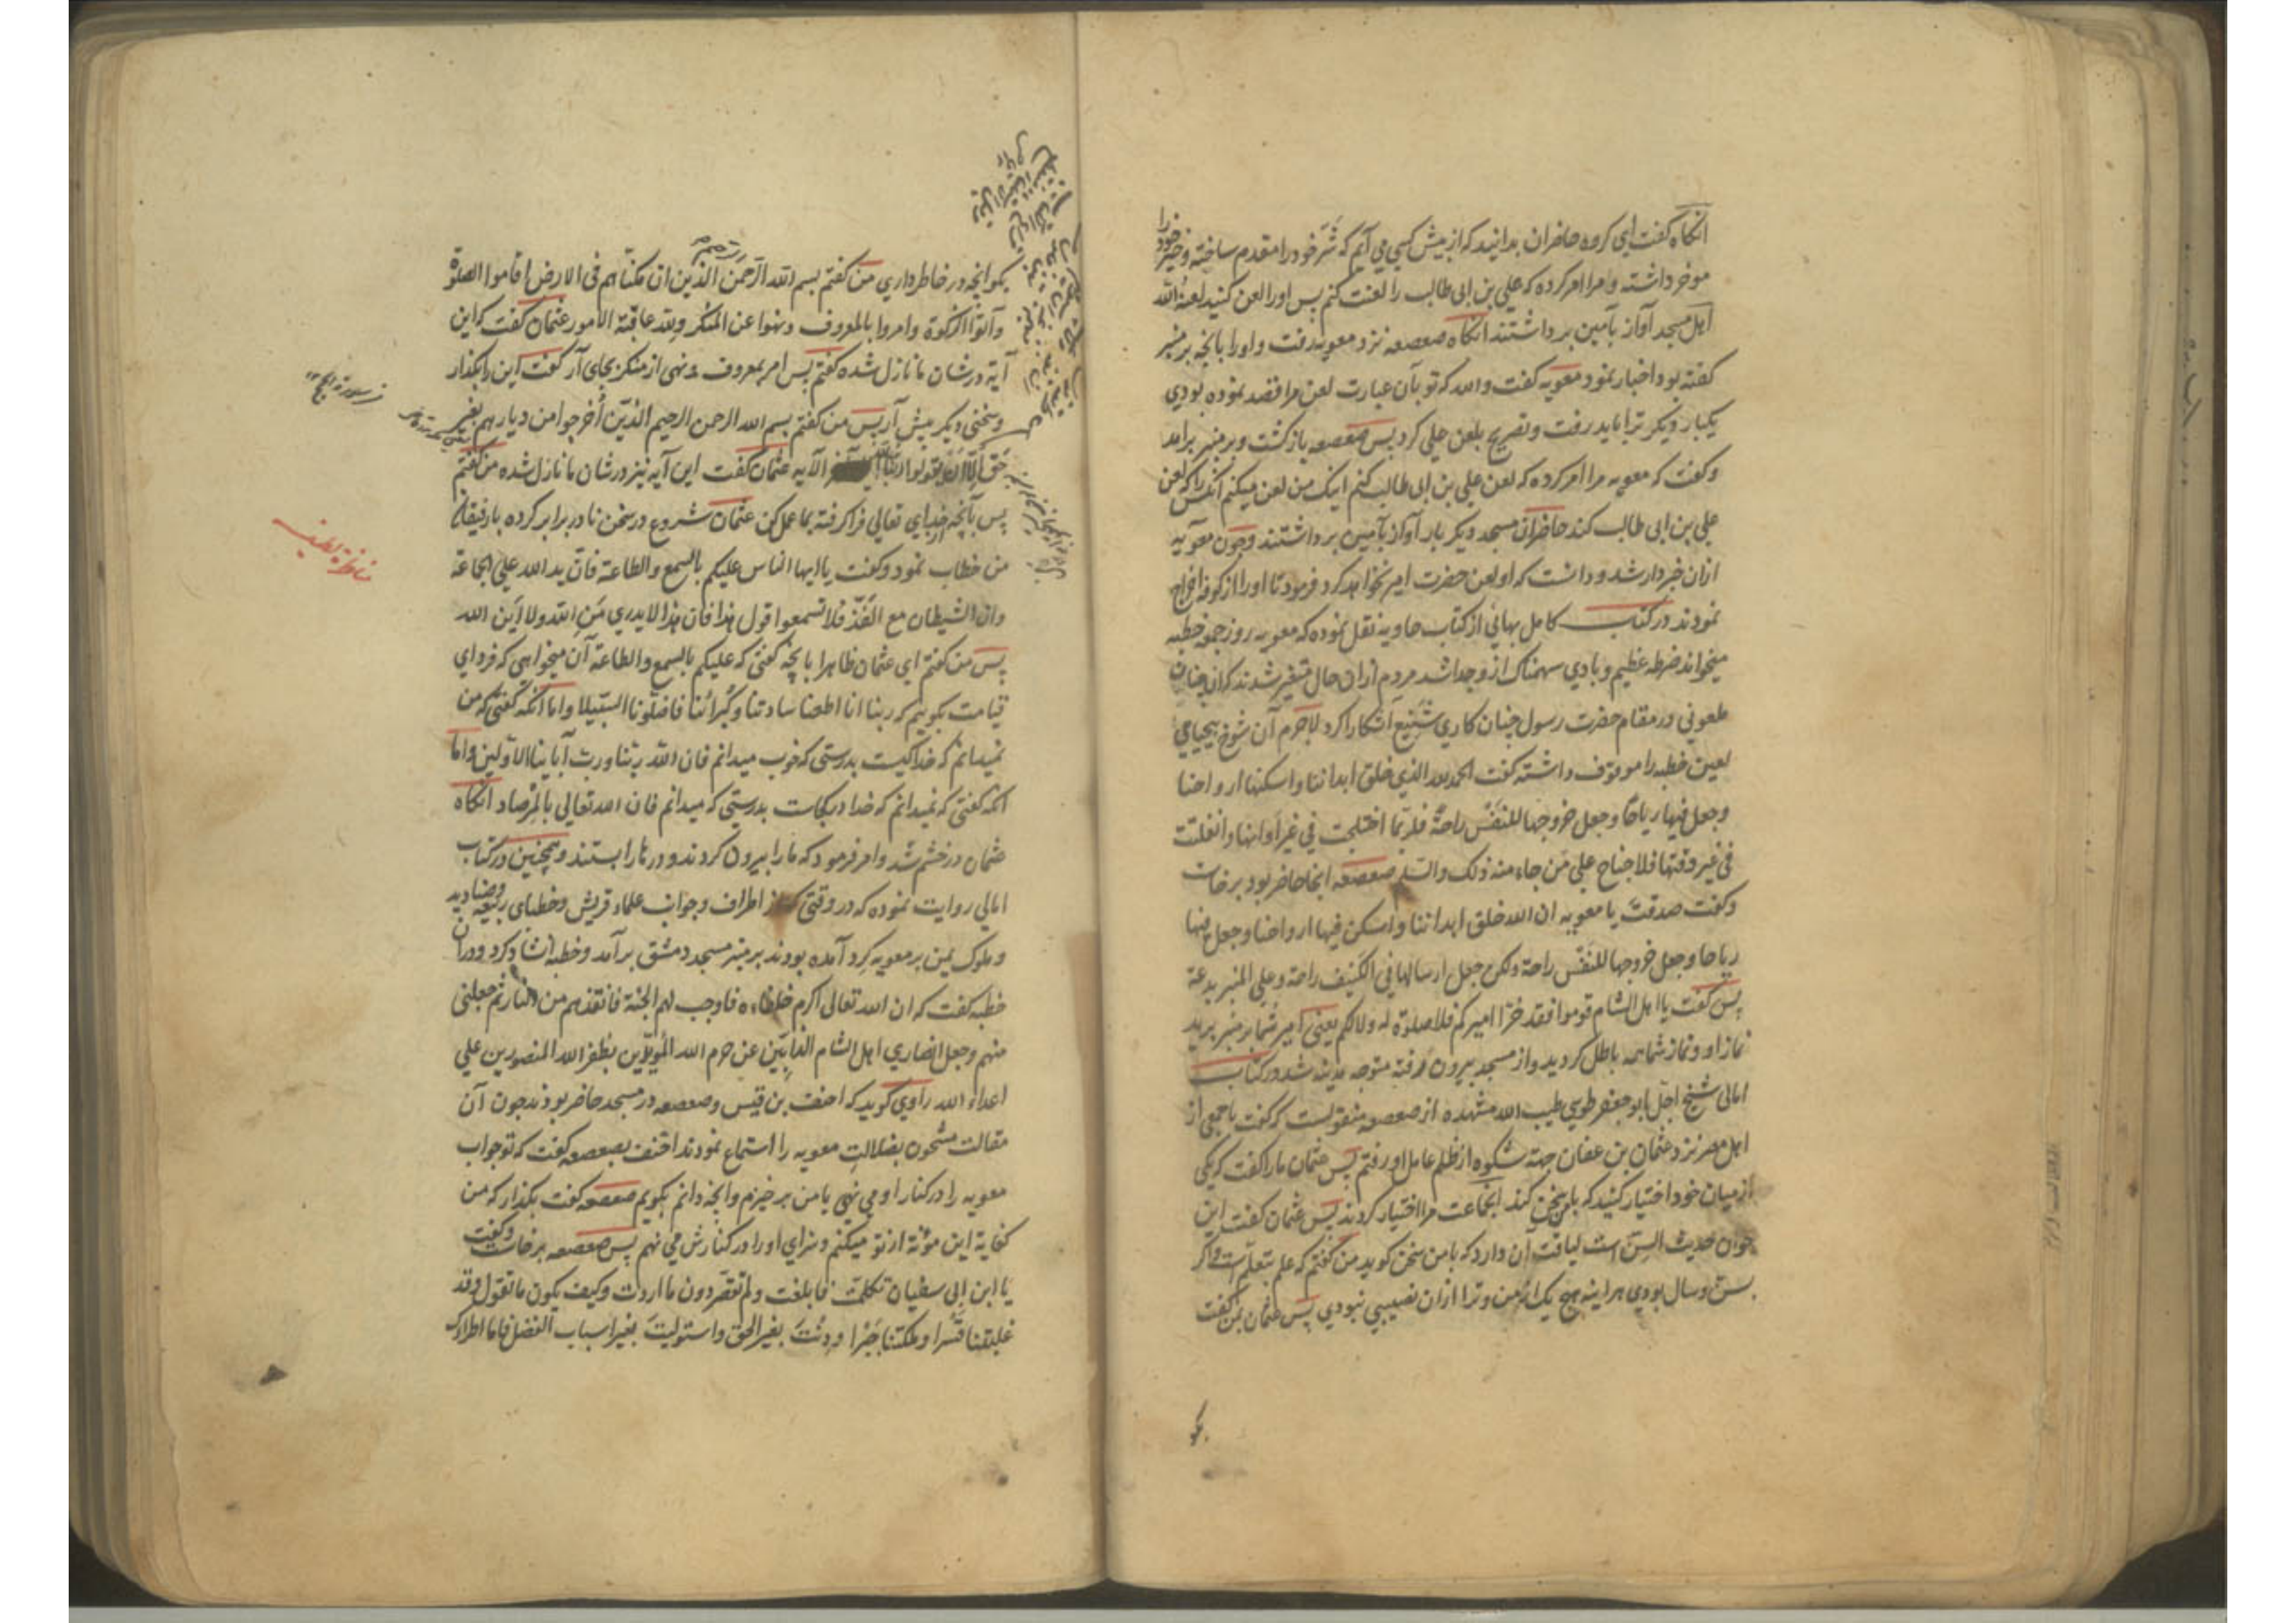 انکاه کفت ای کروه حاضران بدانید که از پیش کسی می آیم که شر خود را مقدم ساخته و خیر خود را
موخر داشته و مرا امر کرده که علی بن ابی طالب را لعنت کنم پس او را لعن کنید لعنه الله
اهل مسجد آواز بآمین برداشتند انکاه صعصعه نزد معویه رفت و او را بانچه بر منبر
کفته بود اخبار نمود معویه کفت والله که تو بآن عبارت لعن مرا قصد نموده بودی
یکبار دیکر ترا باید رفت و تصریح بلعن علی کرد پس صعصعه بازکشت و بر منبر برآمد
و کفت که معویه مرا امر کرده که لعن علی بن ابی طالب کنم اینک من لعن میکنم آنکس را که لعن
علی بن ابی طالب کند حاضران مسجد دیکر بار آواز بآمین برداشتند و چون معویه
ازان خبردار شد و دانست که او لعن حضرت امیر نخواهد کرد فرمود تا او را از کوفه اخراج
نمودند در کتاب کامل بهائی از کتاب حاویه نقل نموده که معویه روز جمعه خطبه
میخواند ضرطه عظیم و بادی سهمناک از و جدا شد مردم ازان حال متغیر شدند که از چنان
ملعونی در مقام حضرت رسول چنان کاری شنیع آشکارا کرد لاجرم آن شوخ بیحیای
لعین خطبه را موقوف داشته کفت الحمد لله الذی خلق ابداننا و اسکنها ارواحنا
وجعل فیها ریاحا وجعل خروجها للنفس راحة فلربما اختلجت فی غیر اوانها وانفلتت
فی غیر وقتها فلا جناح علی من جاء منه ذلک والسلم صعصعه انجا حاضر بود برخاست
و کفت صدقت یا معویه ان الله خلق ابداننا واسکن فیها ارواحنا وجعل فیها
ریاحا وجعل خروجها للنفس راحة ولکن جعل ارسالها فی الکنیف راحة وعلی المنبر بدعة
پس کفت یا اهل الشام قوموا فقد خرا امیرکم فلا صلوة له ولا لکم یعنی امیر شما بر منبر برید
نماز او و نماز شما همه باطل کردید و از مسجد بیرون رفته متوجه مدینه شد در کتاب
امالی شیخ اجل ابو جعفر طوسی طیب الله مشهده از صعصعه منقولست که کفت با جمعی از
اهل مصر نزد عثمان بن عفان جهة شکوه از ظلم عامل او رفتم پس عثمان ما را کفت که یکی
از میان خود اختیار کنید که با من سخن کند انجماعت مرا اختیار کردند پس عثمان کفت این
جوان حدیث السن است لیاقت آن دارد که با من سخن کوید من کفتم که علم بتعلم است و اکر
بسن و سال بودی هر اینه هیچ یک از من و ترا ازان نصیبی نبودی پس عثمان بمن کفت
بکو
بکو انچه در خاطر داری من کفتم بسم الله الرحمن الذین ان مکناهم فی الارض اقاموا الصلوة
وآتوا الزکوة وامروا بالمعروف ونهوا عن المنکر ولله عاقبة الامور عثمان کفت که این
آیه در شان ما نازل شده کفتم پس امر بمعروف و نهی از منکر بجای آر کفت این را بکذار
و سخنی دیکر پیش آر پس من کفتم بسم الله الرحمن الرحیم الذین اخرجوا من دیارهم بغیر
حق الا ان یقولوا ربنا الله الآیه عثمان کفت این آیه نیز در شان ما نازل شده من کفتم
پس بآنچه از خدای تعالی فرا کرفته بما عمل کن عثمان شروع در سخن نا در برابر کرده با رفیقان
من خطاب نمود و کفت یا ایها الناس علیکم بالسمع والطاعة فان ید الله علی الجماعة
وان الشیطان مع الفذ فلا تسمعوا قول هذا فان هذا لا یدری من الله ولا این الله
پس من کفتم ای عثمان ظاهرا بانچه کفتی که علیکم بالسمع والطاعة آن میخواهی که فردای
قیامت بکویم که ربنا انا اطعنا سادتنا وکبرائنا فاضلونا السبیلا و اما آنکه کفتی که من
نمیدانم که خدا کیست بدرستی که خوب میدانم فان الله ربنا ورب آبائنا الاولین و اما
آنکه کفتی که نمیدانم که خدا در کجاست بدرستی که میدانم فان الله تعالی بالمرصاد انکاه
عثمان در خشم شد و امر فرمود که ما را بیرون کردند و در ما را بستند و همچنین در کتاب
امالی روایت نموده که در وقتی که از اطراف و جوانب علماء قریش و خطبای ربیعه و صنادید
و ملوک یمن بر معویه کرد آمده بودند بر منبر مسجد دمشق برآمد و خطبه انشاد کرد و در آن
خطبه کفت که ان الله تعالی اکرم خلفاءه فاوجب لهم الجنة فانقذهم من النار ثم جعلنی
منهم وجعل انصاری اهل الشام الذابین عن حرم الله المؤیدین بظفر الله المنصورین علی
اعداء الله راوی کوید که احنف بن قیس و صعصعه در مسجد حاضر بودند چون آن
مقالت مشحون بضلالت معویه را استماع نمودند احنف بصعصعه کفت که تو جواب
معویه را در کنار او می نهی یا من برخیزم و انچه دانم بکویم صعصعه کفت بکذار که من
کفایة این مؤنة از تو میکنم و سزای او را در کنارش می نهم پس صعصعه برخاست و کفت
یا ابن ابی سفیان تکلمت فابلغت ولم تقصر دون ما اردت وکیف یکون ما تقول وقد
غلبتنا قسرا وملکتنا جبرا ودنت بغیر الحق واستولیت بغیر اسباب الفضل فاما اطراءک
در سورة الحج
مناظره لطیف